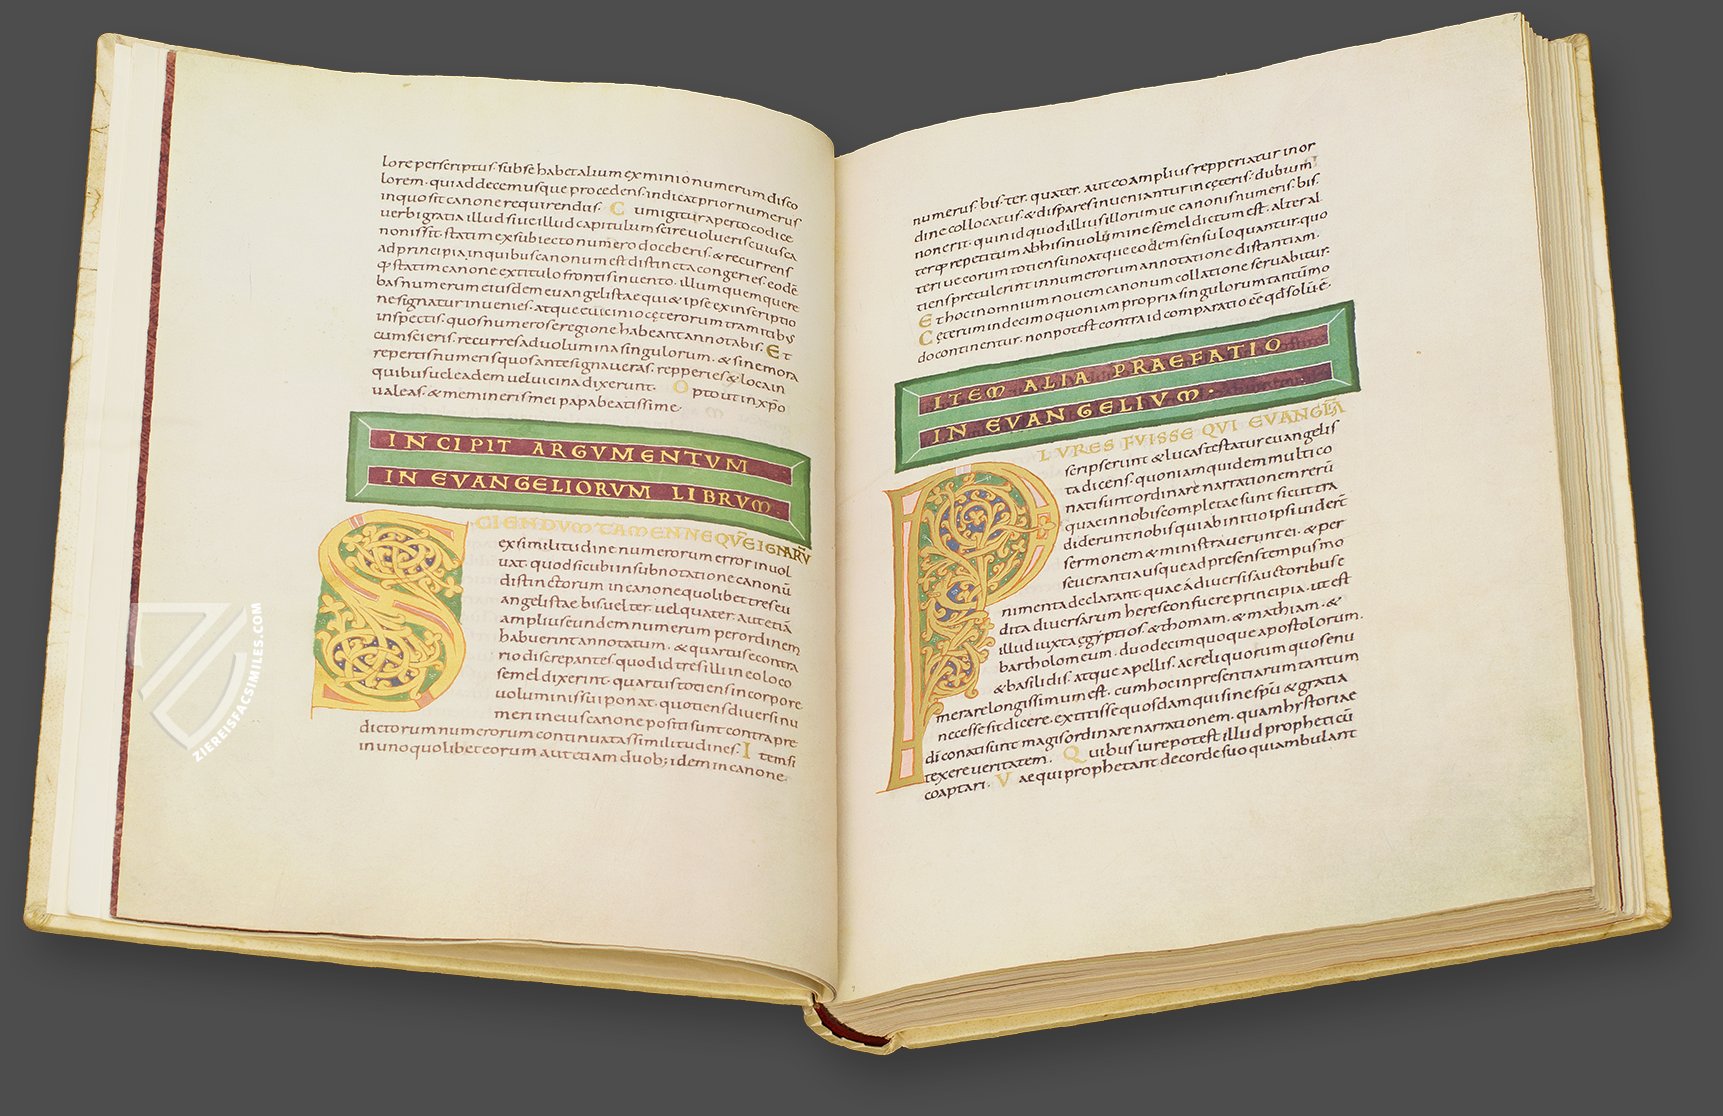 lore perscriptus. subse habet alium ex minio numerum disco
lorem. quia ad decem usque procedens. indicat prior numerus
in quo sit canone requirendus. Cum igitur aperto codice
verbi gratia illud siue illud capitulum scire volueris cuiusca
non issit. statim ex subiecto numero doceberis. & recurrens
ad principia in quibus canonum est distincta congeries. eodē
q; statim canone ex titulo frontis invento. illum quem quere
bas numerum eiusdem evangelistae qui & ipse ex inscriptio
ne signatur invenies. atque e vicino cęterorum tramitibus
inspectis. quos numeros e regione habeant annotabis. Et
cum scieris. recurres ad volumina singulorum. & sine mora
repertis numeris quos ante signaveras. repperies & loca in
quibus vel eadem vel vicina dixerunt. Opto ut in xp̄o
valeas. & memineris mei papa beatissime.
INCIPIT ARGVMENTVM
IN EVANGELIORVM LIBRVM.
SCIENDVM TAMEN NE QVĒ IGNARV̄
ex similitudine numerorum error invol
vat. quod sicubi in subnotatione canonū
distinctorum in canone quolibet tres eu
angelistae. bis. vel ter. vel quater. aut etiā
amplius eundem numerum per ordinem
habuerint annotatum. & quartus e contra
rio discrepantes. quod id tres illi in eo loco
semel dixerint. quartus totiens in corpore
voluminis sui ponat. quotiens diversi nu
meri in eius canone positi sunt contra pre
dictorum numerorum continuatas similitudines. Item si
in uno quolibet eorum aut etiam duob; idem in canone
numerus. bis. ter. quater. aut eo amplius repperiatur in or
dine collocatus. & dispares inveniantur in cęteris. dubium
non erit. quin id quod illius illorumve canonis numeris. bis.
terq; repetitum ab his in volumine semel dictum est. alter al
terive eorum totiens uno atque eodem sensu loquantur. quo
tiens pretulerint in numerorum annotatione distantiam.
Et hoc in omnium novem canonum collatione servabitur.
Cęterum in decimo quoniam propria singulorum tantūmo
do continentur. non potest contra id comparatio eē qd solū ē.
ITEM ALIA PRAEFATIO
IN EVANGELIVM.
PLVRES FVISSE QVI EVANGĹĀ
scripserunt & lucas testatur evangelis
ta dicens. quoniam quidem multi co
nati sunt ordinare narrationem rerū
quae in nobis completae sunt sicut tra
diderunt nobis qui ab initio ipsi viderē
sermonem & ministraverunt ei. & per
severantia usque ad presens tempus mo
nimenta declarant. quae a diversis auctoribus e
dita diversarum hereseon fuere principia. ut est
illud iuxta egyptios. & thomam. & mathiam. &
bartholomeum. duodecim quoque apostolorum.
& basilidis. atque apellis. ac reliquorum quos enu
merare longissimum est. cum hoc in presentiarum tantum
necesse sit dicere. extitisse quosdam qui sine spū & gratia
di conati sunt magis ordinare narrationem. quam hystoriae
texere veritatem. Quibus iure potest illud propheticū
coaptari. Vae qui prophetant de corde suo qui ambulant
ZIEREISFACSIMILES.COM